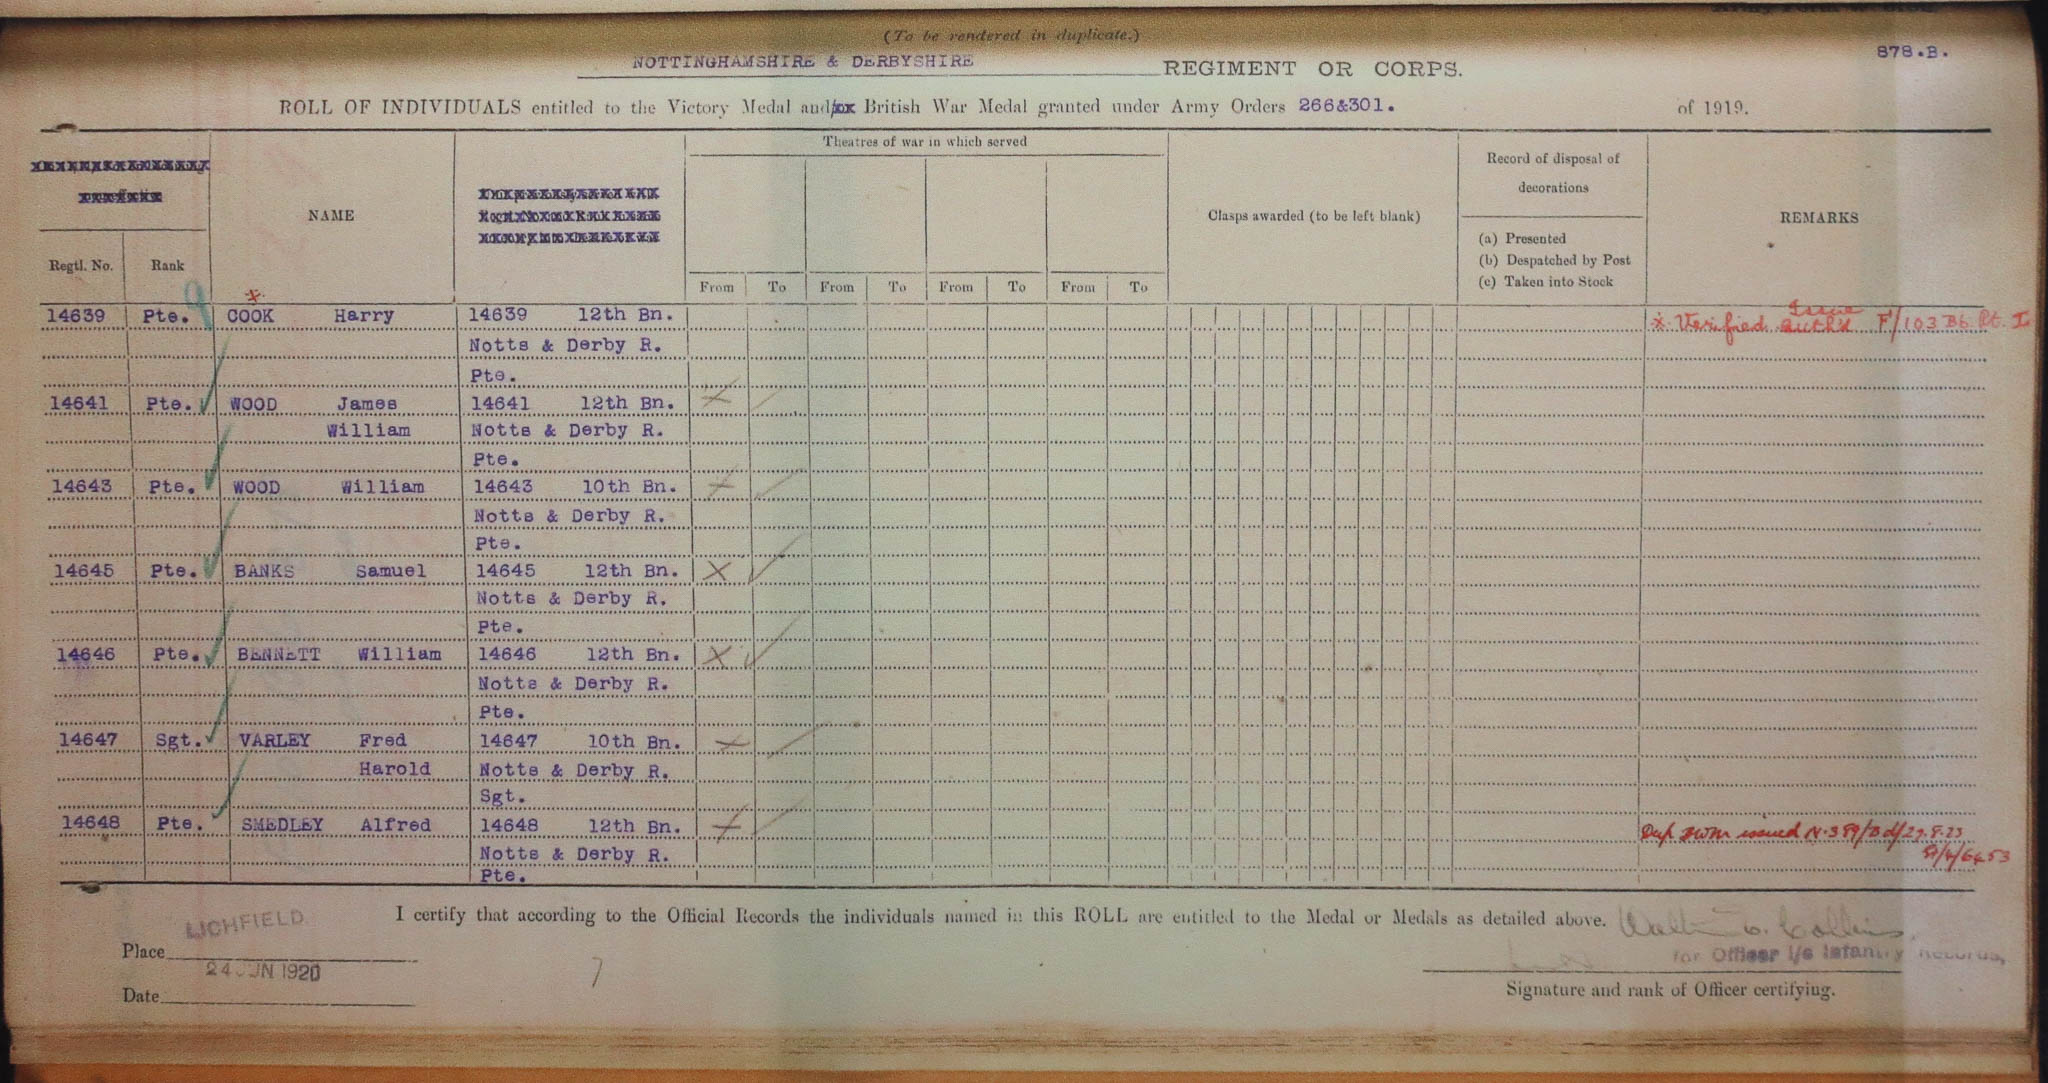 (To be rendered in duplicate.)
878.B.
NOTTINGHAMSHIRE & DERBYSHIRE REGIMENT OR CORPS.
ROLL OF INDIVIDUALS entitled to the Victory Medal and/ British War Medal granted under Army Orders 266&301. of 1919.
Theatres of war in which served
Record of disposal of
decorations
NAME
Clasps awarded (to be left blank)
REMARKS
(a) Presented
(b) Despatched by Post
(c) Taken into Stock
Regtl. No. Rank
From To From To From To From To
14639 Pte. COOK Harry 14639 12th Bn. Verified Issue auth'd F/103 B6 Pt. I
Notts & Derby R.
Pte.
14641 Pte. WOOD James 14641 12th Bn.
William Notts & Derby R.
Pte.
14643 Pte. WOOD William 14643 10th Bn.
Notts & Derby R.
Pte.
14645 Pte. BANKS Samuel 14645 12th Bn.
Notts & Derby R.
Pte.
14646 Pte. BENNETT William 14646 12th Bn.
Notts & Derby R.
Pte.
14647 Sgt. VARLEY Fred 14647 10th Bn.
Harold Notts & Derby R.
Sgt.
14648 Pte. SMEDLEY Alfred 14648 12th Bn. Dup BWM issued
Notts & Derby R.
Pte.
I certify that according to the Official Records the individuals named in this ROLL are entitled to the Medal or Medals as detailed above.
LICHFIELD
Place
for Officer i/c Infantry Records,
24 JUN 1920
Date
Signature and rank of Officer certifying.